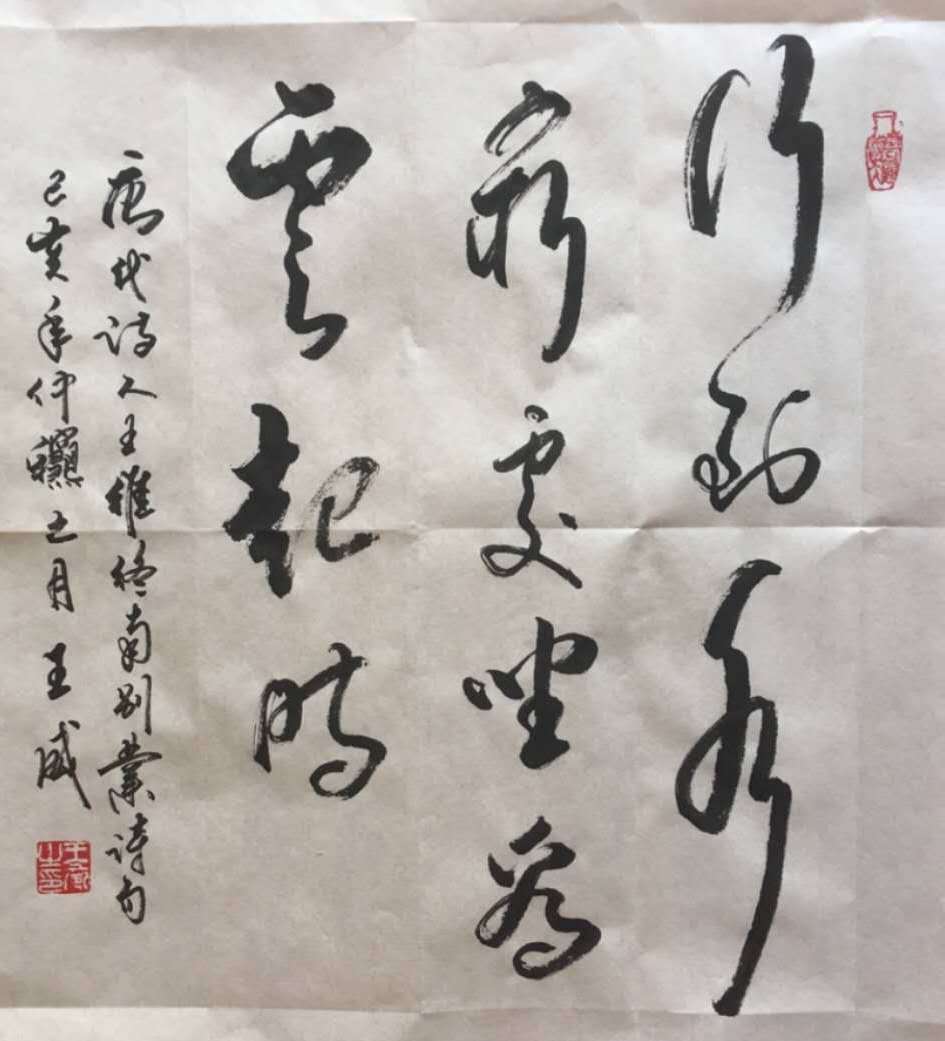 行到水
穷处坐看
雲起时
唐代诗人王维终南别业诗句
己亥年仲龝之月 王威
王威之印